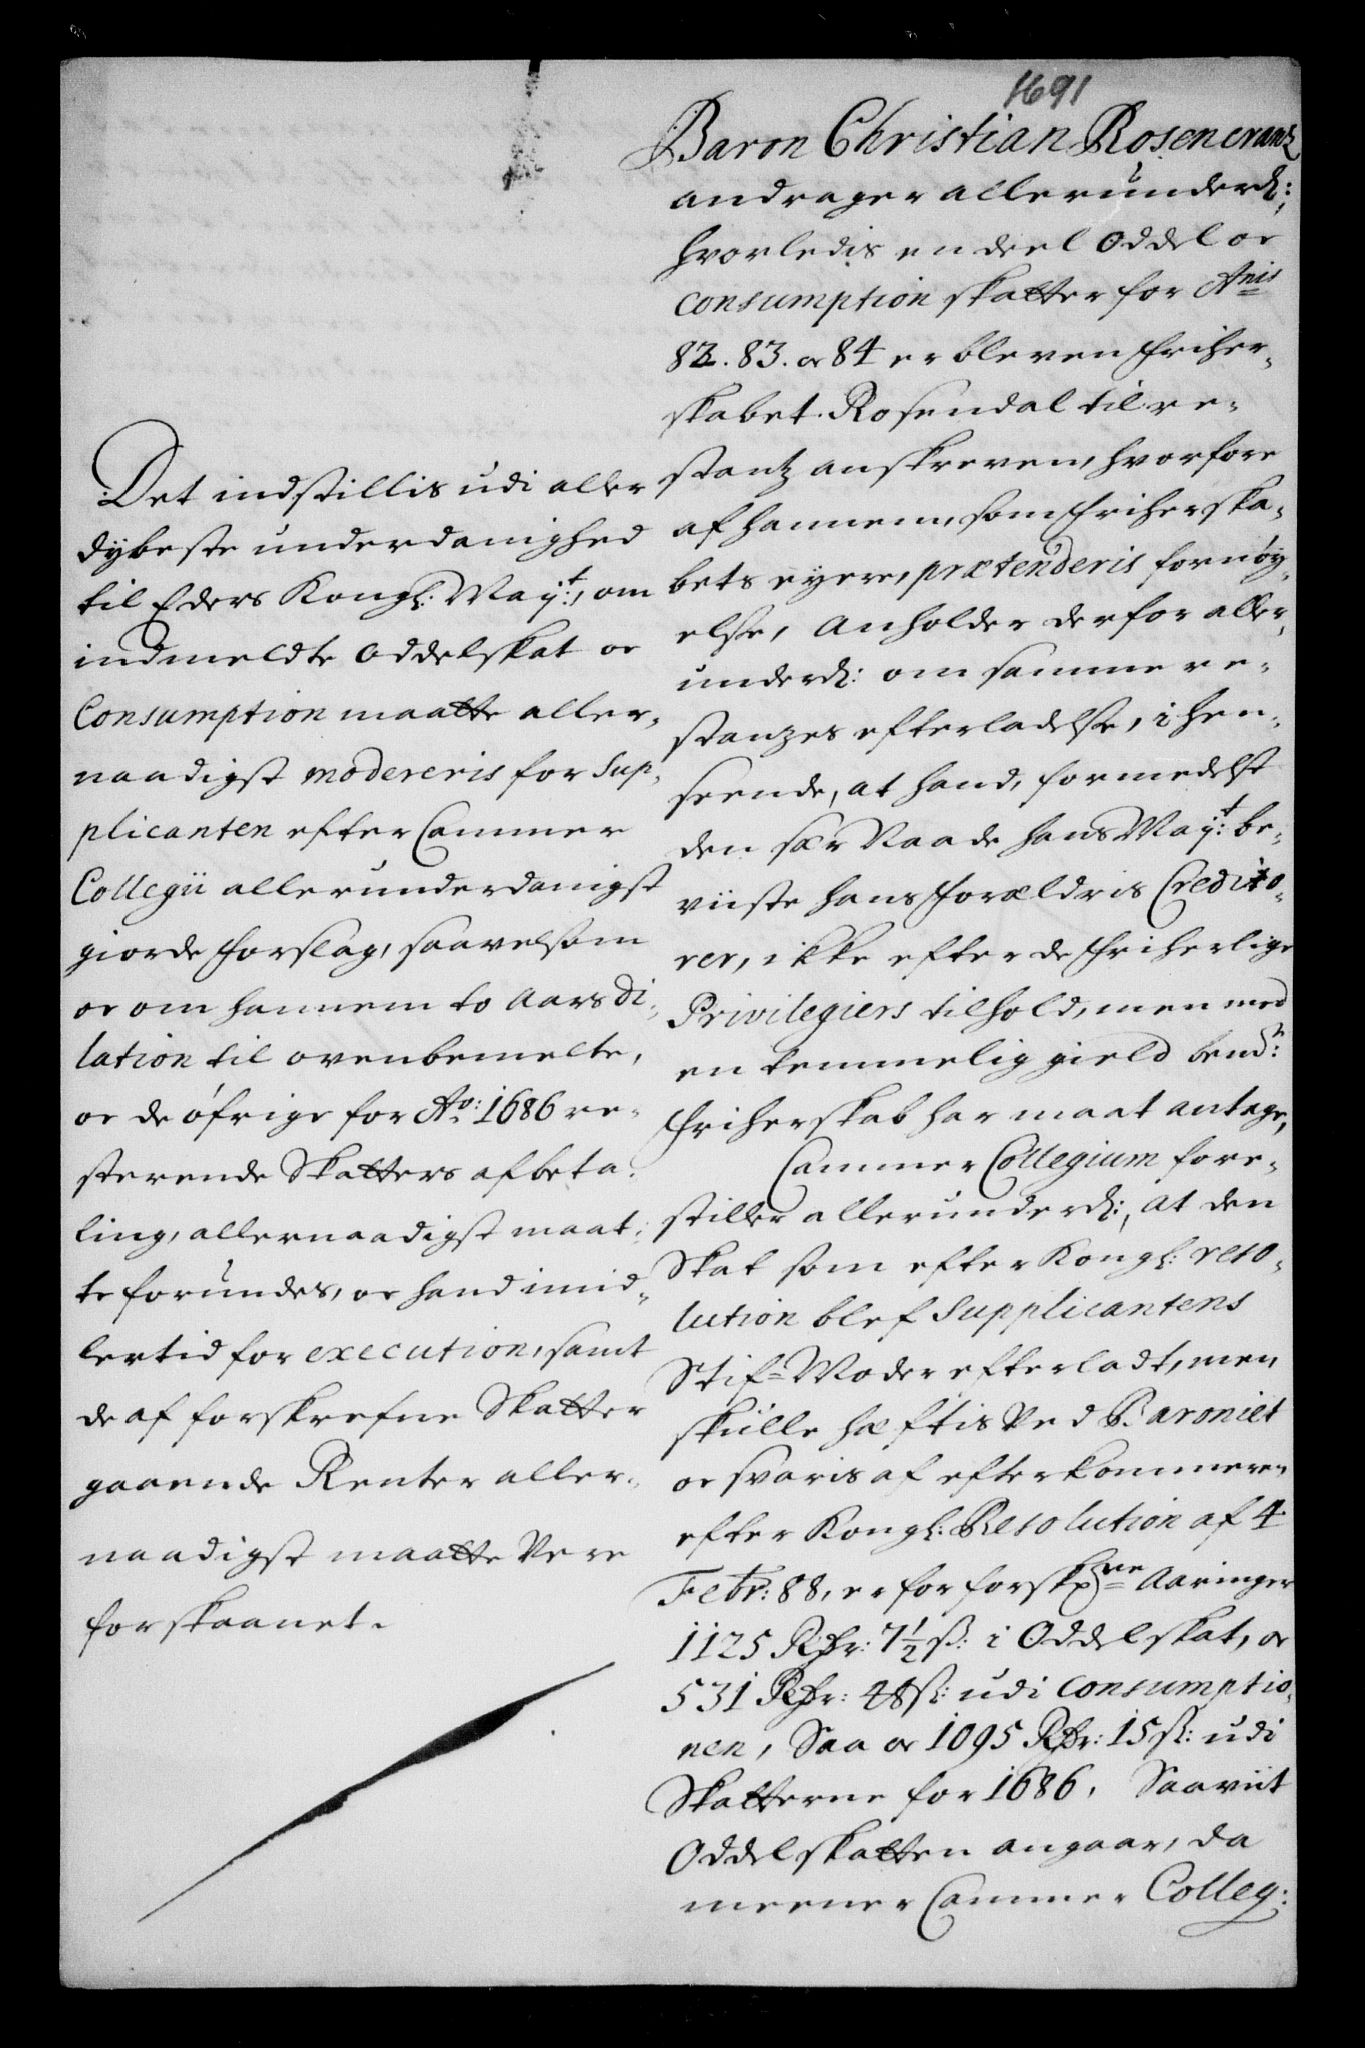 1691
Baron Christian Rosencrantz
andrager allerunderd:
hvorledis en deel Oddel oc
consumption skatter for Anis
82. 83. oc 84 er bleven friher-
skabet Rosendal til re-
stantz anskreven, hvorfore
af hannem, som friherska-
bets eyere, prætenderis fornøy-
else, Anholder derfor aller-
underd: om samme re-
stanzes efterladelse, i hen-
seende, at hand, formedelst
den sær Naade hans May:t be-
viiste hans forældris Credito-
rer, ikke efter de friherlige
Privilegiers tilhold, men med
en temmelig gield bemd:te
friherskab har maat antage,
Cammer Collegium fore-
stiller allerunderd:, at den
Skat som efter Kongl: reso-
lution blef Supplicantens
Stif-Moder efterladt, men
skulle hæftis ved Baroniet
oc svaris af efterkommeren
efter Kongl: Resolution af 4
Febr: 88, er for forskrne Aaringer
1125 Rdr: 7½ s: i Oddelskat, oc
531 Rdr: 48 s: udi consumptio-
nen, Saa oc 1095 Rdr: 15 s: udi
Skatterne for 1686. Saaviit
Oddelskatten angaar, da
meener Cammer Colleg:
Det indstillis udi aller
dybeste underdanighed
til Eders Kongl: May:t, om
indmeldte Oddelskat oc
Consumption maatte aller-
naadigst modereris for Sup-
plicanten efter Cammer
Collegii allerunderdanigst
giorde forslag, saavelsom
oc om hannem to Aars di-
lation til ovenbemelte,
oc de øfrige for Ao: 1686 re-
sterende Skatters afbeta-
ling, allernaadigst maat-
te forundes, oc hand imid-
lertid for execution, samt
de af forskrefne Skatter
gaaende Renter aller-
naadigst maatte være
forskaanet.